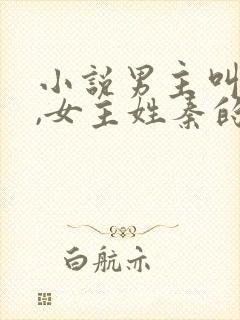 小說男主叫
,女主姓秦的
白航亦